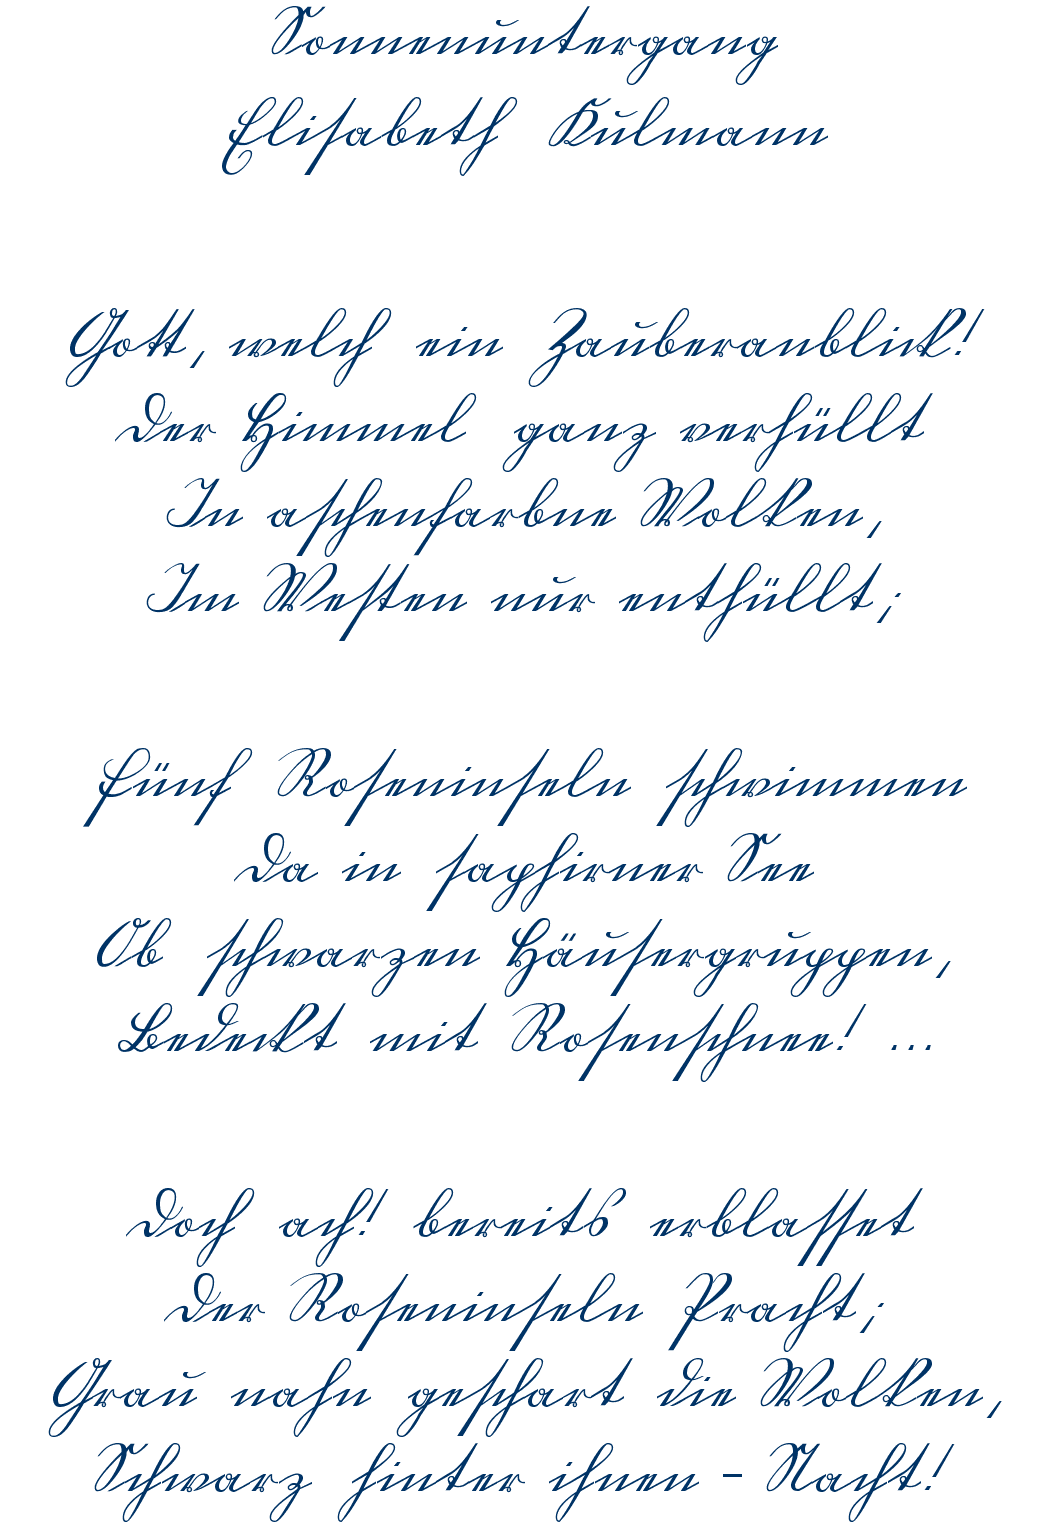 Sonnenuntergang
Elisabeth Kulmann
Gott, welch ein Zauberanblick!
Der Himmel ganz verhüllt
In aschenfarbne Wolken,
Im Westen nur enthüllt;
Fünf Roseninseln schwimmen
Da in saphirner See
Ob schwarzen Häusergruppen,
Bedeckt mit Rosenschnee! ...
Doch ach! bereits erblasset
Der Roseninseln Pracht;
Grau nahn geschart die Wolken,
Schwarz hinter ihnen – Nacht!